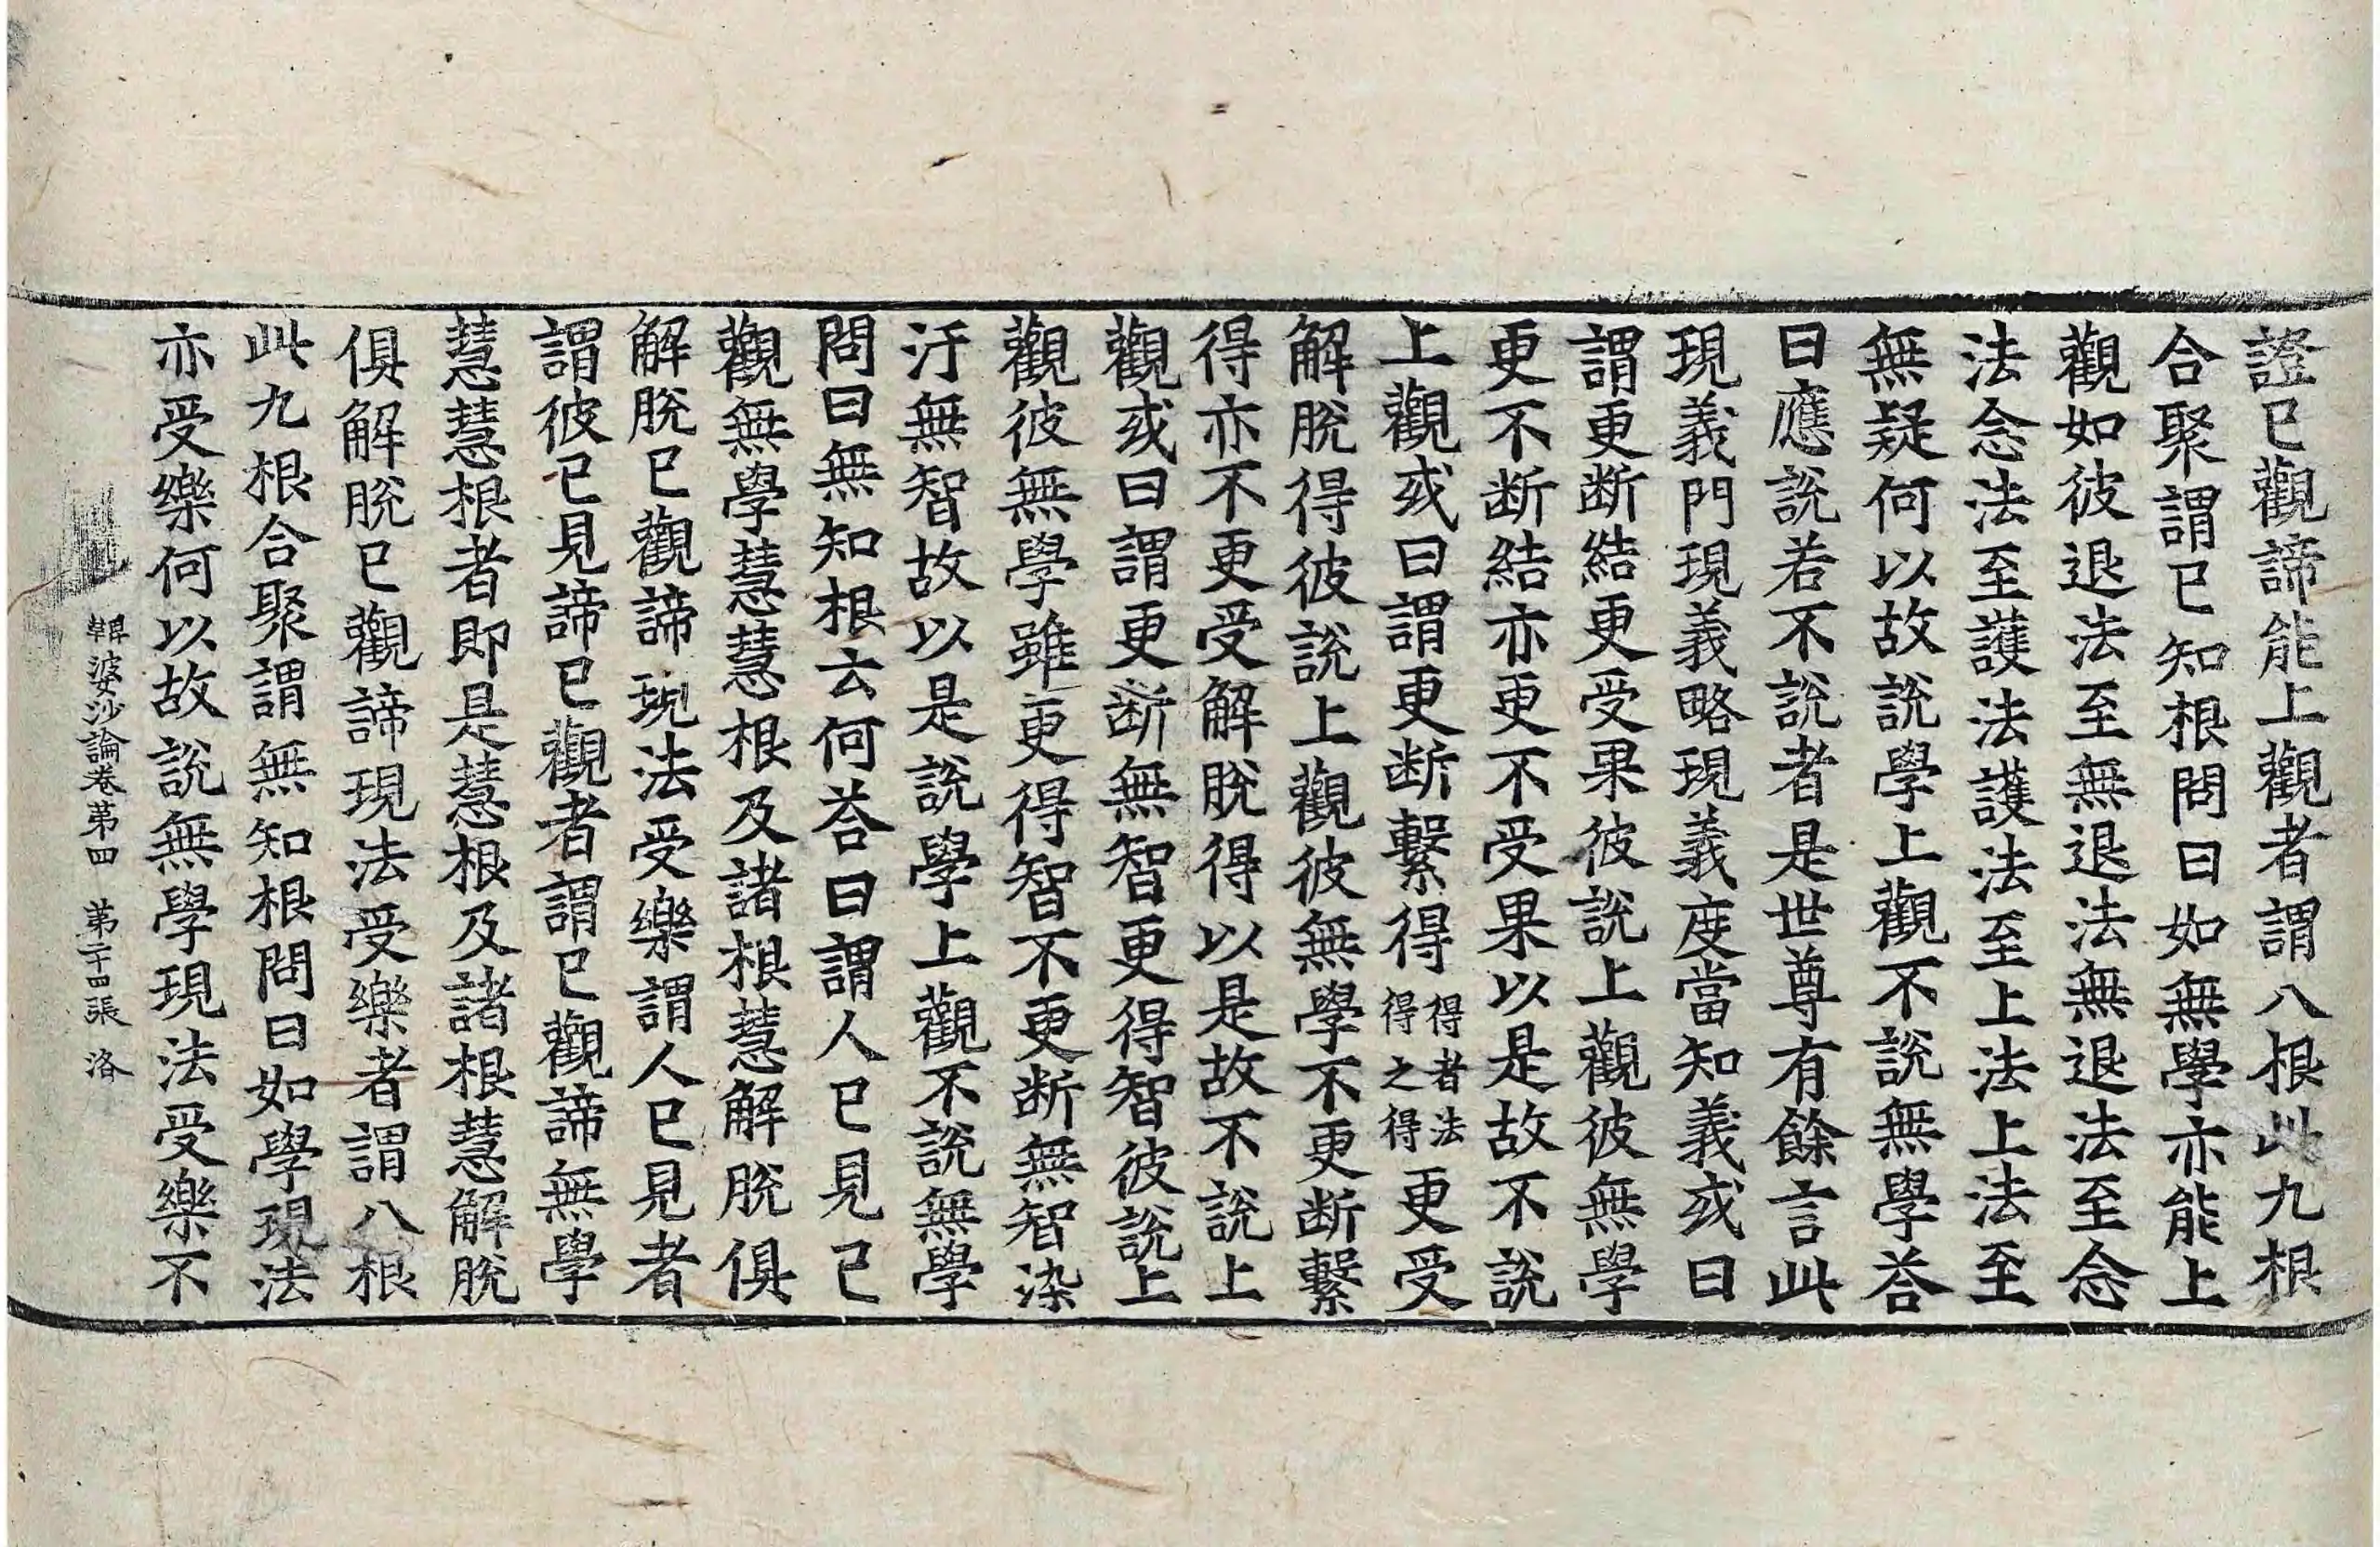 證已觀諦能上觀者謂八根此九根
合聚謂已知根問曰如無學亦能上
觀如彼退法至無退法無退法至念
法念法至護法護法至上法上法至
無疑何以故說學上觀不說無學荅
曰應說若不說者是世尊有餘言此
現義門現義略現義度當知義或曰
謂更断結更受果彼說上觀彼無學
更不断結亦更不受果以是故不說
上觀或曰謂更断繫得得者法得之得更受
解脫得彼說上觀彼無學不更断繫
得亦不更受解脫得以是故不說上
觀或曰謂更断無智更得智彼說上
觀彼無學雖更得智不更断無智染
汙無智故以是說學上觀不說無學
問曰無知根云何荅曰謂人已見已
觀無學慧慧根及諸根慧解脫俱
解脫已觀諦現法受樂謂人已見者
謂彼已見諦已觀者謂已觀諦無學
慧慧根者即是慧根及諸根慧解脫
俱解脫已觀諦現法受樂者謂八根
此九根合聚謂無知根問曰如學現法
亦受樂何以故說無學現法受樂不
鞞婆沙論卷第四 第二十四張 洛